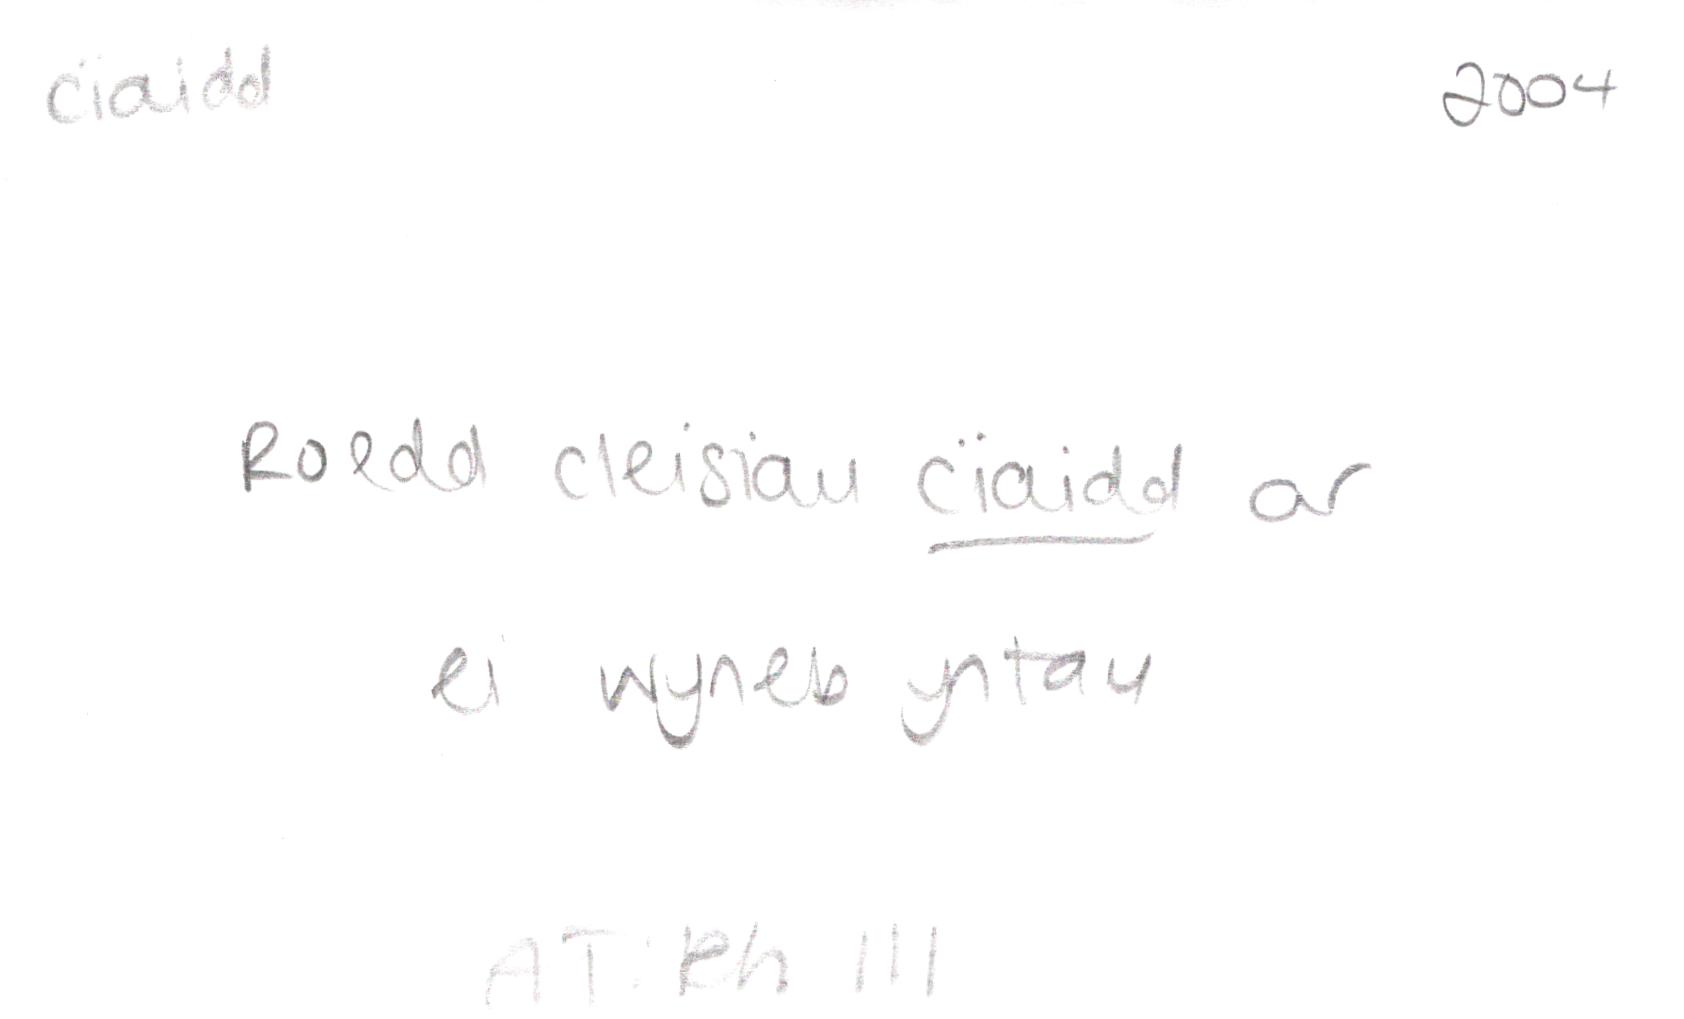 cïaidd 2004
Roedd cleisiau cïaidd ar
ei wyneb yntau
AT: Rh 111